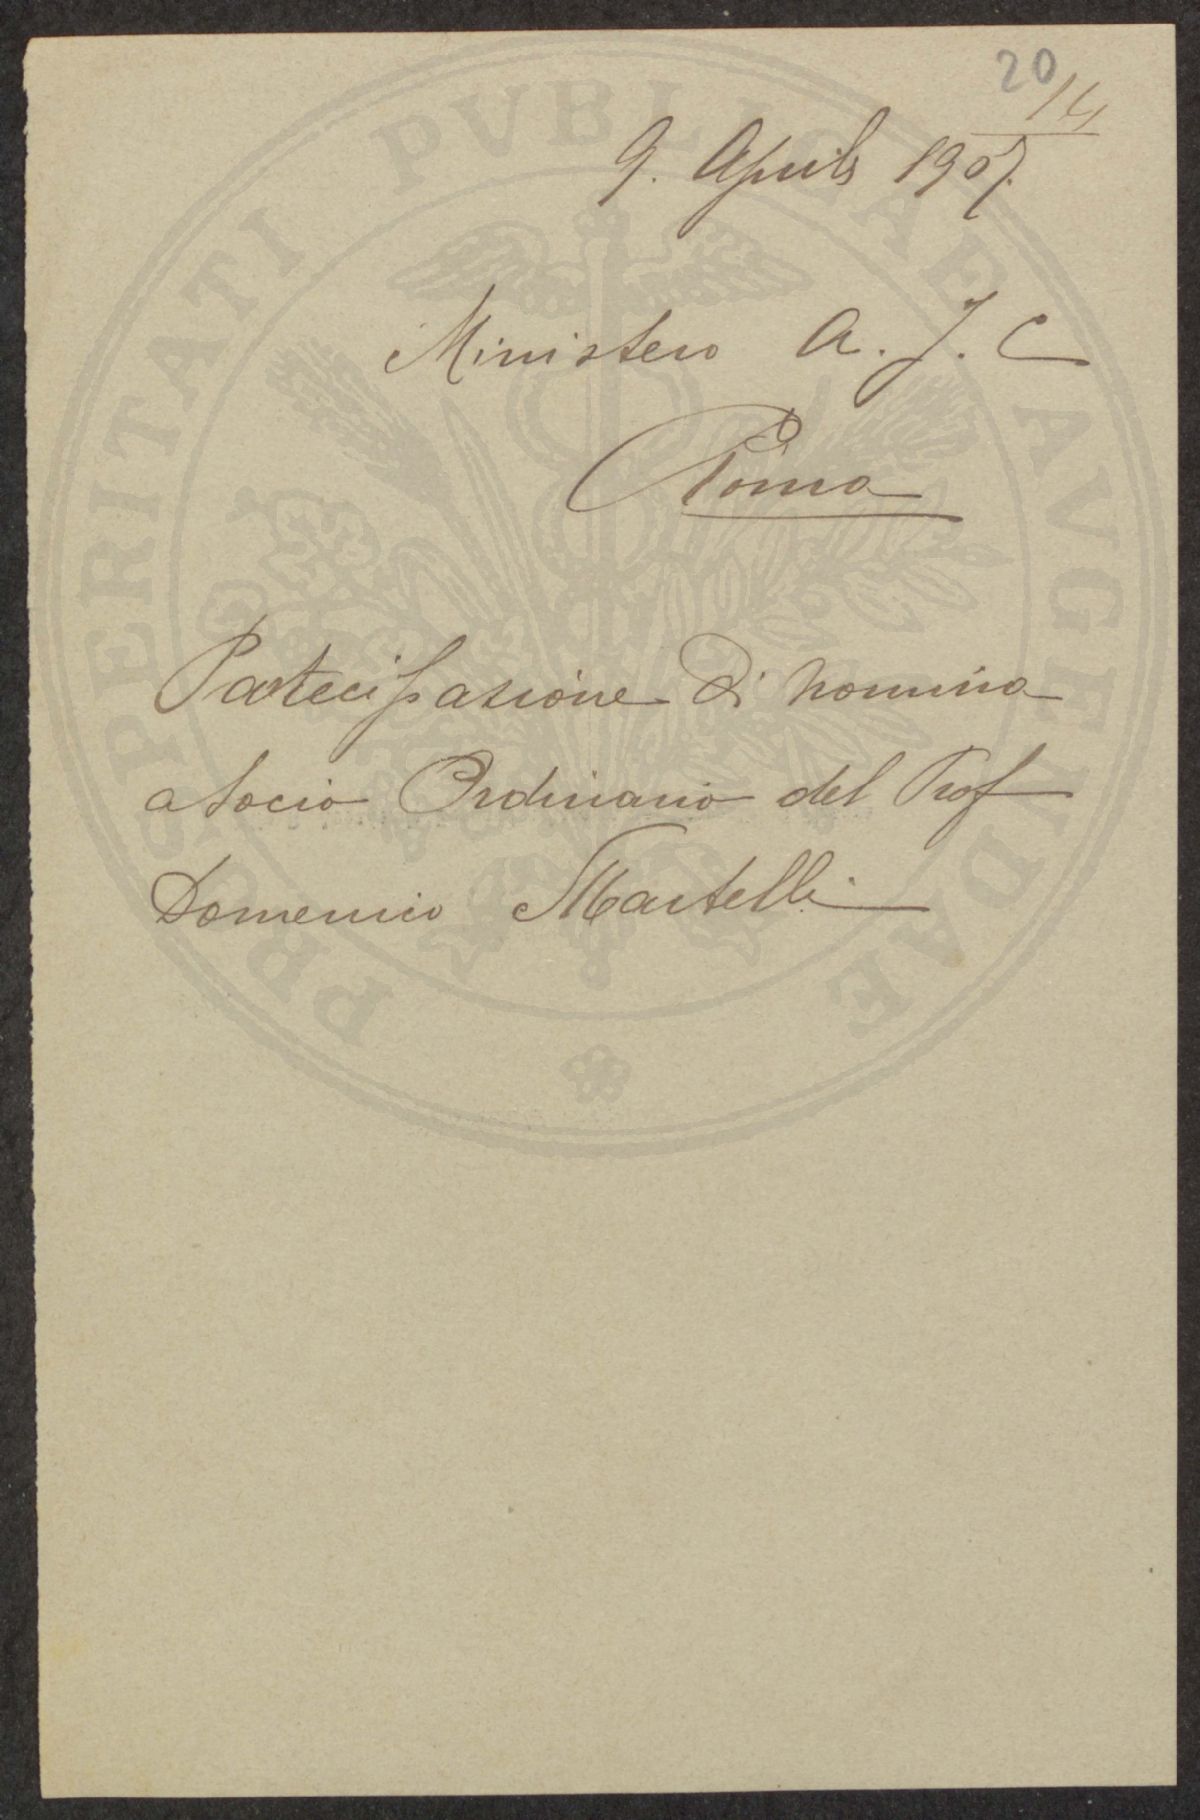 20
14
9. Aprile 1907.
Ministero A. I. C
Roma
Partecipazione di nomina
a Socio Ordinario del Prof
Domenico Martelli
PROSPERITATI PVBLICAE AVGENDAE